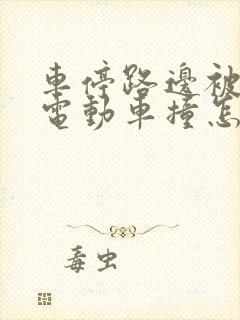 車停路邊被
電動車撞怎
毒虫